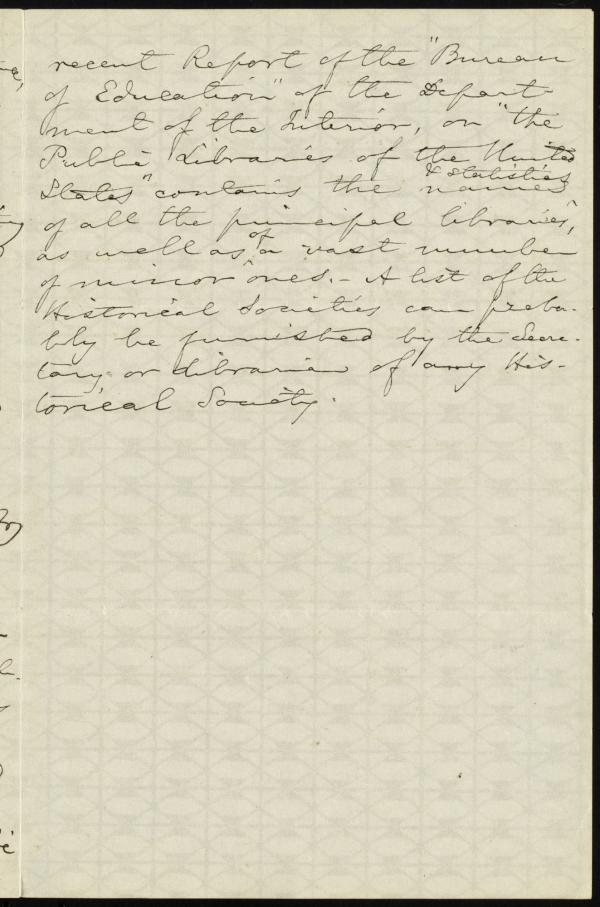 recent Report of the "Bureau
of Education" of the Depart-
ment of the Interior, on "the
Public Libraries of the United
& statistics
States" contains the names
of all the principal libraries,
of
as well as a vast number
of minor ones. - A list of the
Historical Societies can proba-
bly be furnished by the Secre-
tary or Librarian of any His-
torical Society.